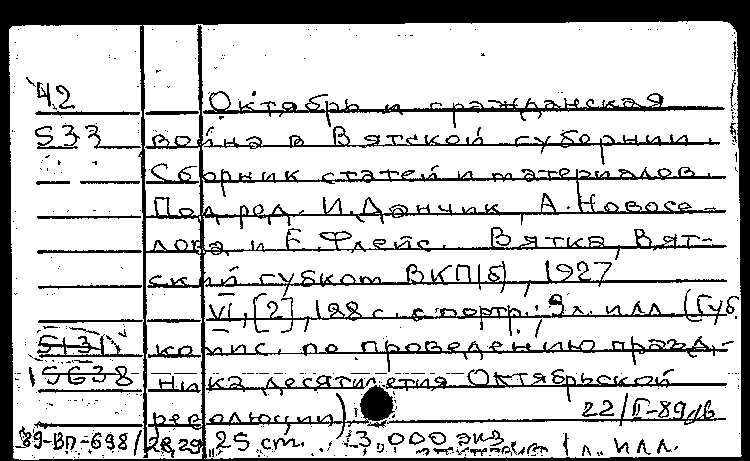 42 Октябрь и гражданская
533 война в Вятской губернии.
Сборник статей и материалов.
Под ред. И.Данчик, А.Новосе-
лова и Е.Флейс. Вятка, Вят-
ский губком ВКП(б), 1927
VI, [2], 188 с. с портр.; 9 л. илл. (Губ.
5131 комис. по проведению празд-
15638 ника десятилетия Октябрьской
революции) 22/II-89
89-ВП-698/ 28,29 25 cm. 3.000 экз. 1 л. илл.